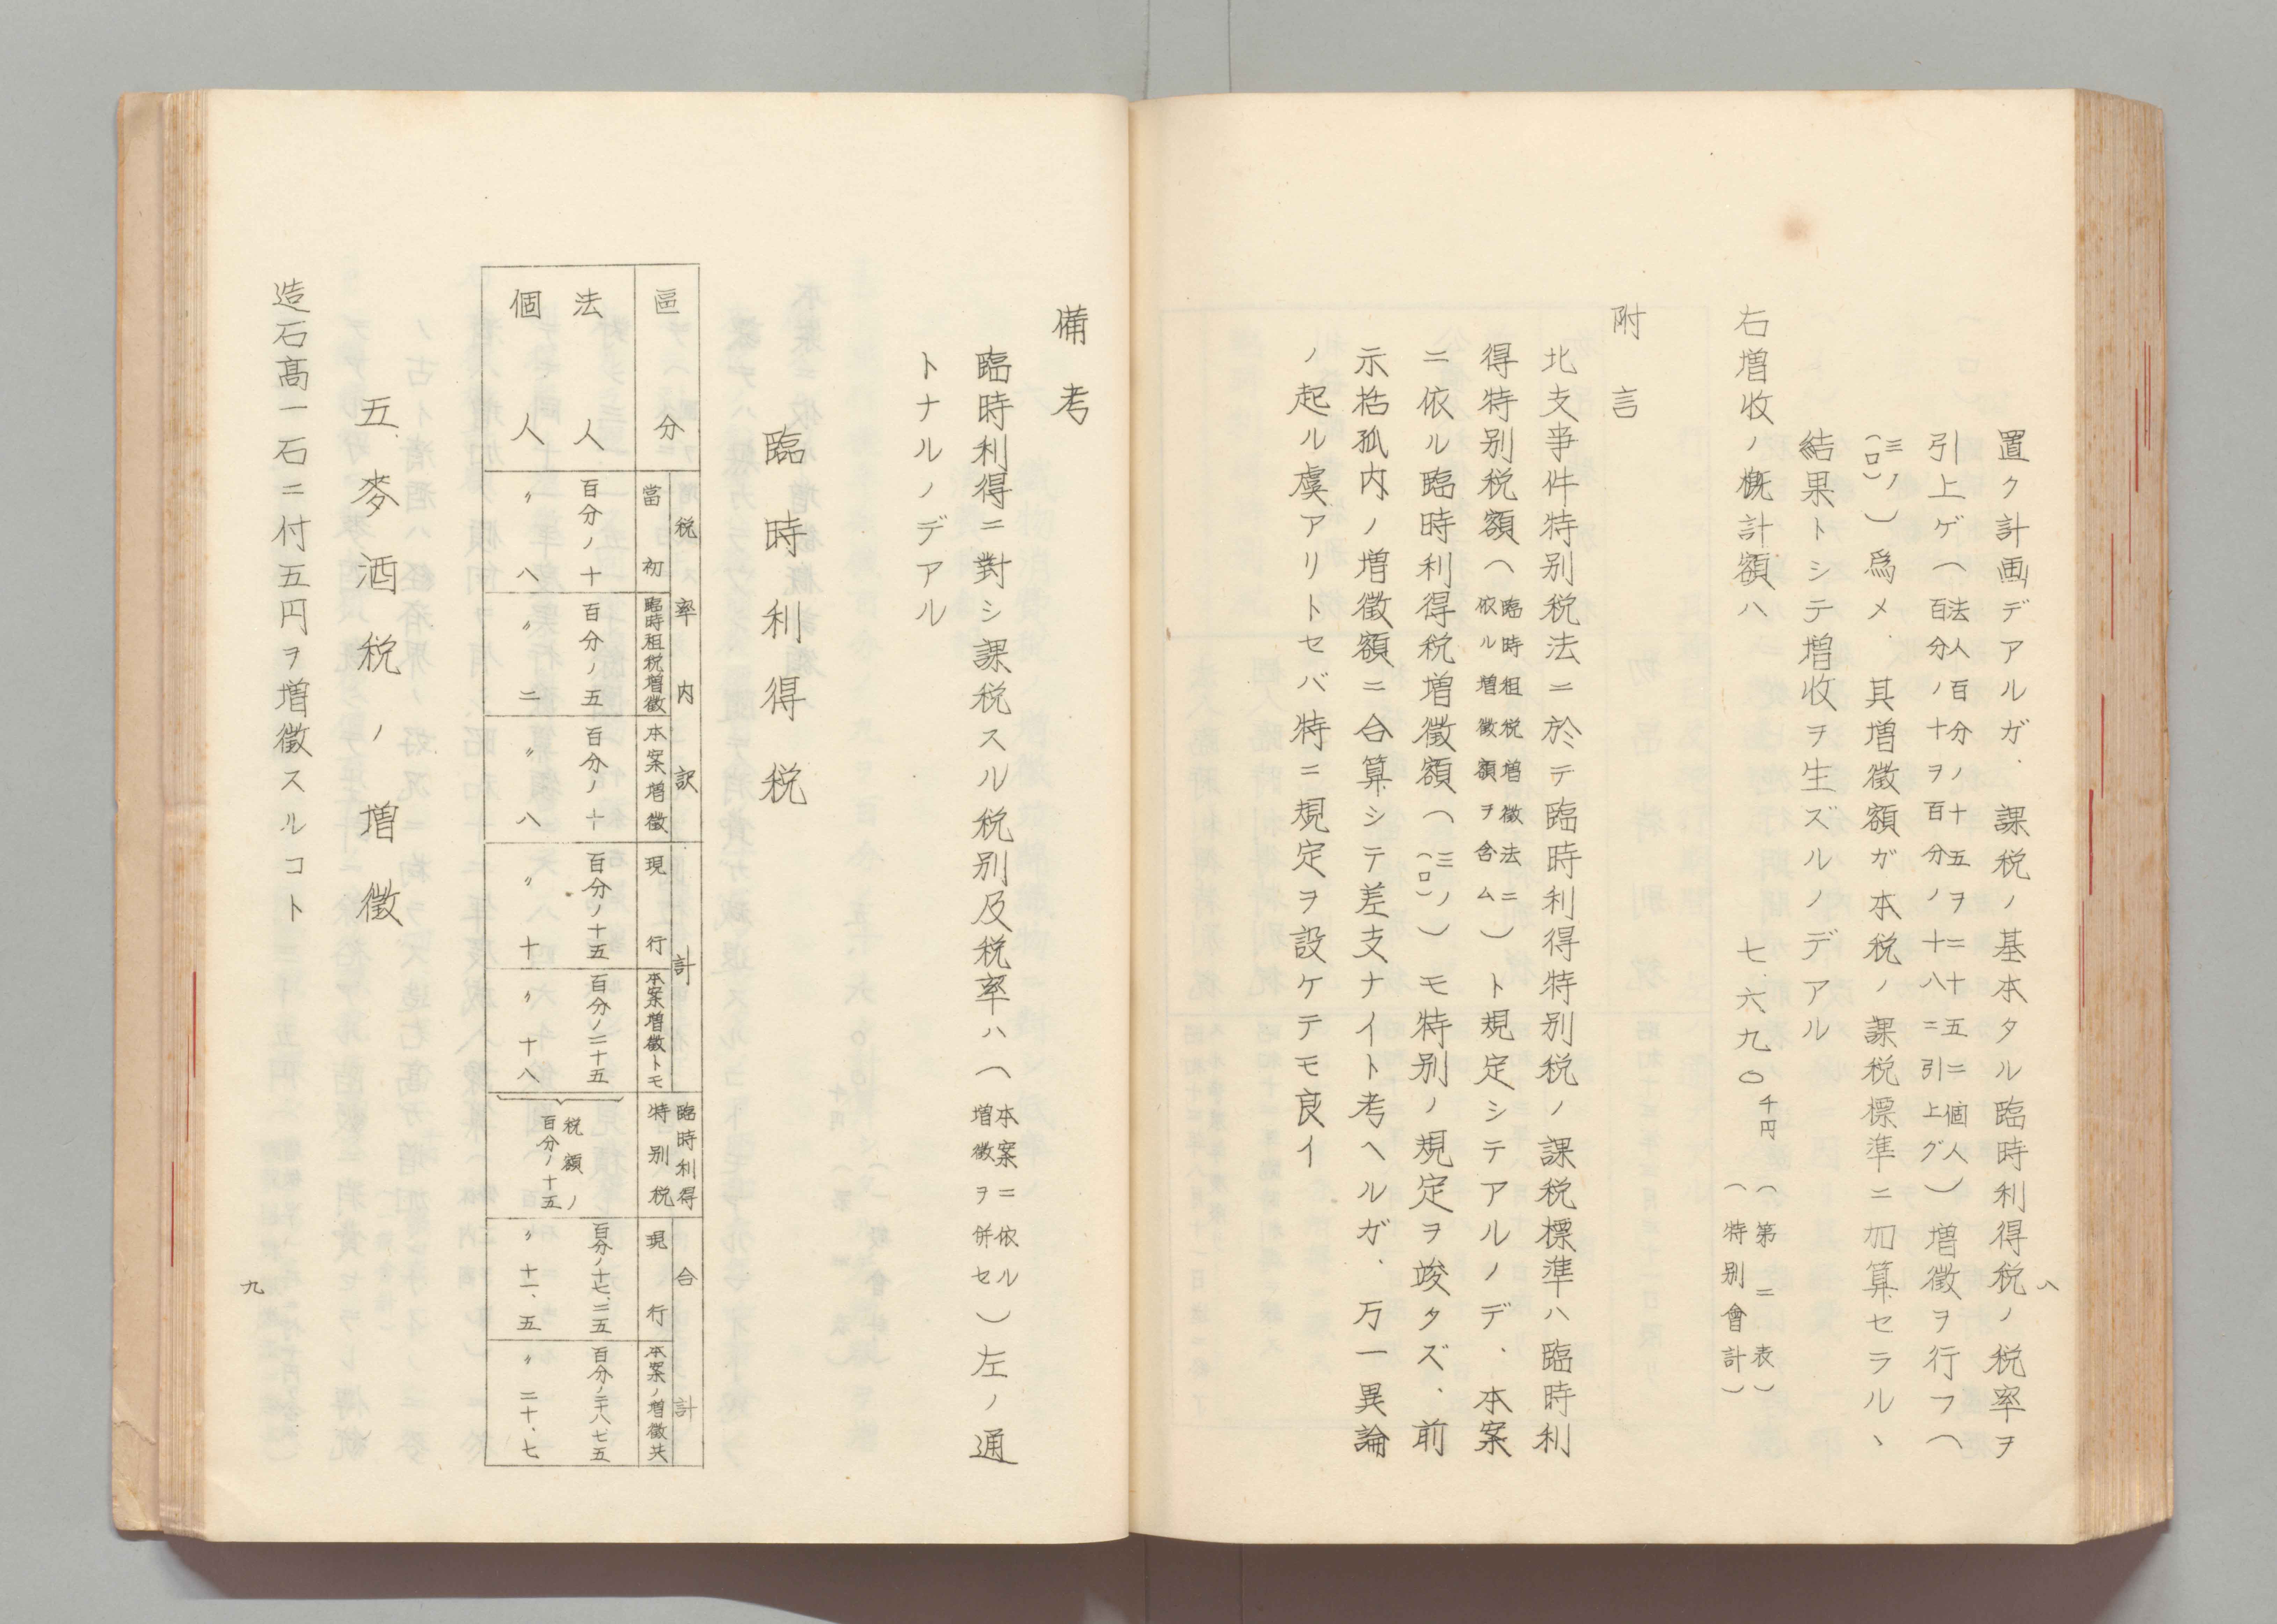 置ク計画デアルガ、課税ノ基本タル臨時利得税ノ税率ヲ
引上ゲ(法人百分ノ十五ヲ二十五ニ個人百分ノ十ヲ百分ノ十八ニ引上グ)増徴ヲ行フ(
三ノ(ロ))爲メ、其増徴額ガ本税ノ課税標準ニ加算セラルヽ
結果トシテ増收ヲ生ズルノデアル
右増收ノ概計額ハ 七、六九〇千円 (第二表)(特別會計)
附言
北支事件特別税法ニ於テ臨時利得特別税ノ課税標準ハ臨時利
得特別税額(臨時租税増徴法ニ依ル増徴額ヲ含ム)ト規定シテアルノデ、本案
ニ依ル臨時利得税増徴額(三ノ(ロ))モ特別ノ規定ヲ竣タズ、前
示括弧内ノ増徴額ニ合算シテ差支ナイト考ヘルガ、万一異論
ノ起ル虞アリトセバ特ニ規定ヲ設ケテモ良イ
八
備考
臨時利得ニ對シ課税スル税別及税率ハ(本案ニ依ル増徴ヲ併セ)左ノ通
トナルノデアル
臨時利得税
區分
税率内訳
計
臨時利得特別税
合計
當初
臨時租税増徴
本案増徴
現行
本案増徴トモ
現行
本案ノ増徴共
法人
百分ノ十
百分ノ五
百分ノ十
百分ノ十五
百分ノ二十五
税額ノ百分ノ十五
百分ノ十七、二五
百分ノ二八、七五
個人
〃 八
〃 二
〃 八
〃 十
〃 十八
〃 十一、五
〃 二十、七
五、麥酒税ノ増徴
造石高一石ニ付五円ヲ増徴スルコト
九